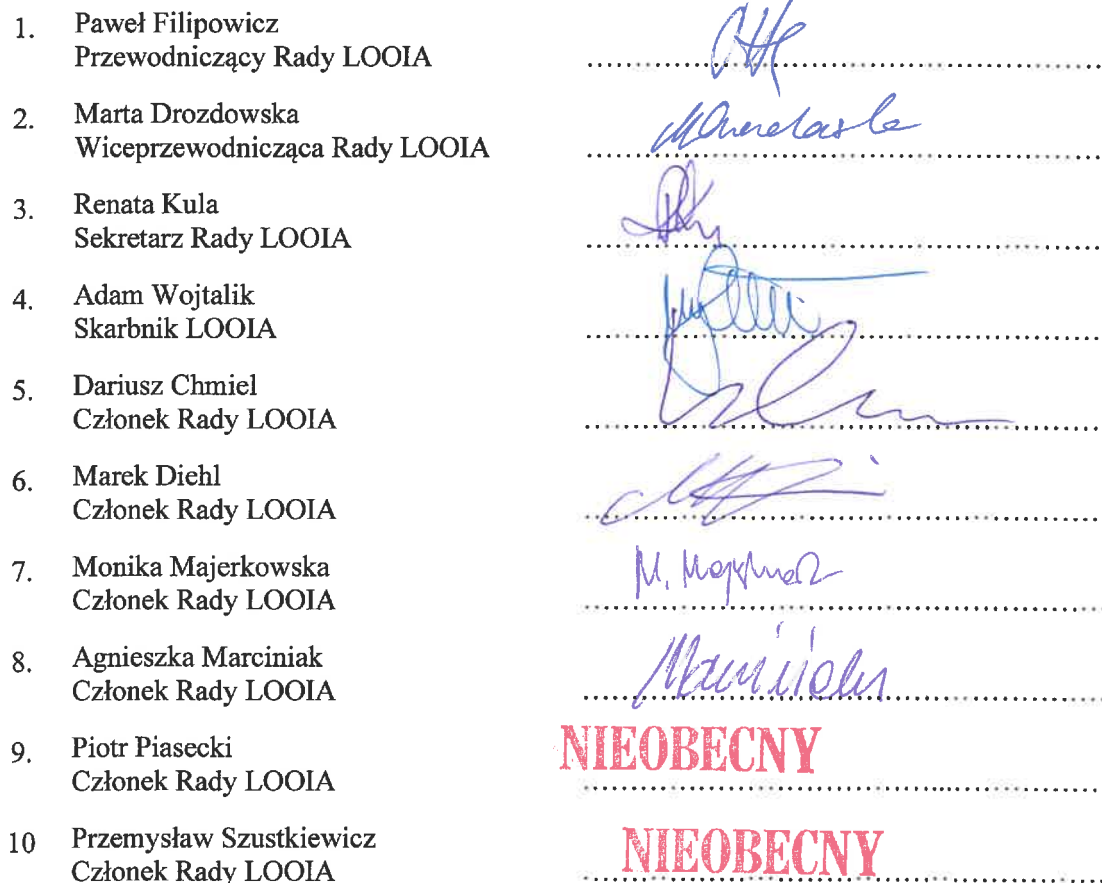 1. Paweł Filipowicz
Przewodniczący Rady LOOIA
2. Marta Drozdowska
Wiceprzewodnicząca Rady LOOIA
3. Renata Kula
Sekretarz Rady LOOIA
4. Adam Wojtalik
Skarbnik LOOIA
5. Dariusz Chmiel
Członek Rady LOOIA
6. Marek Diehl
Członek Rady LOOIA
7. Monika Majerkowska
Członek Rady LOOIA
8. Agnieszka Marciniak
Członek Rady LOOIA
9. Piotr Piasecki NIEOBECNY
Członek Rady LOOIA
10 Przemysław Szustkiewicz NIEOBECNY
Członek Rady LOOIA